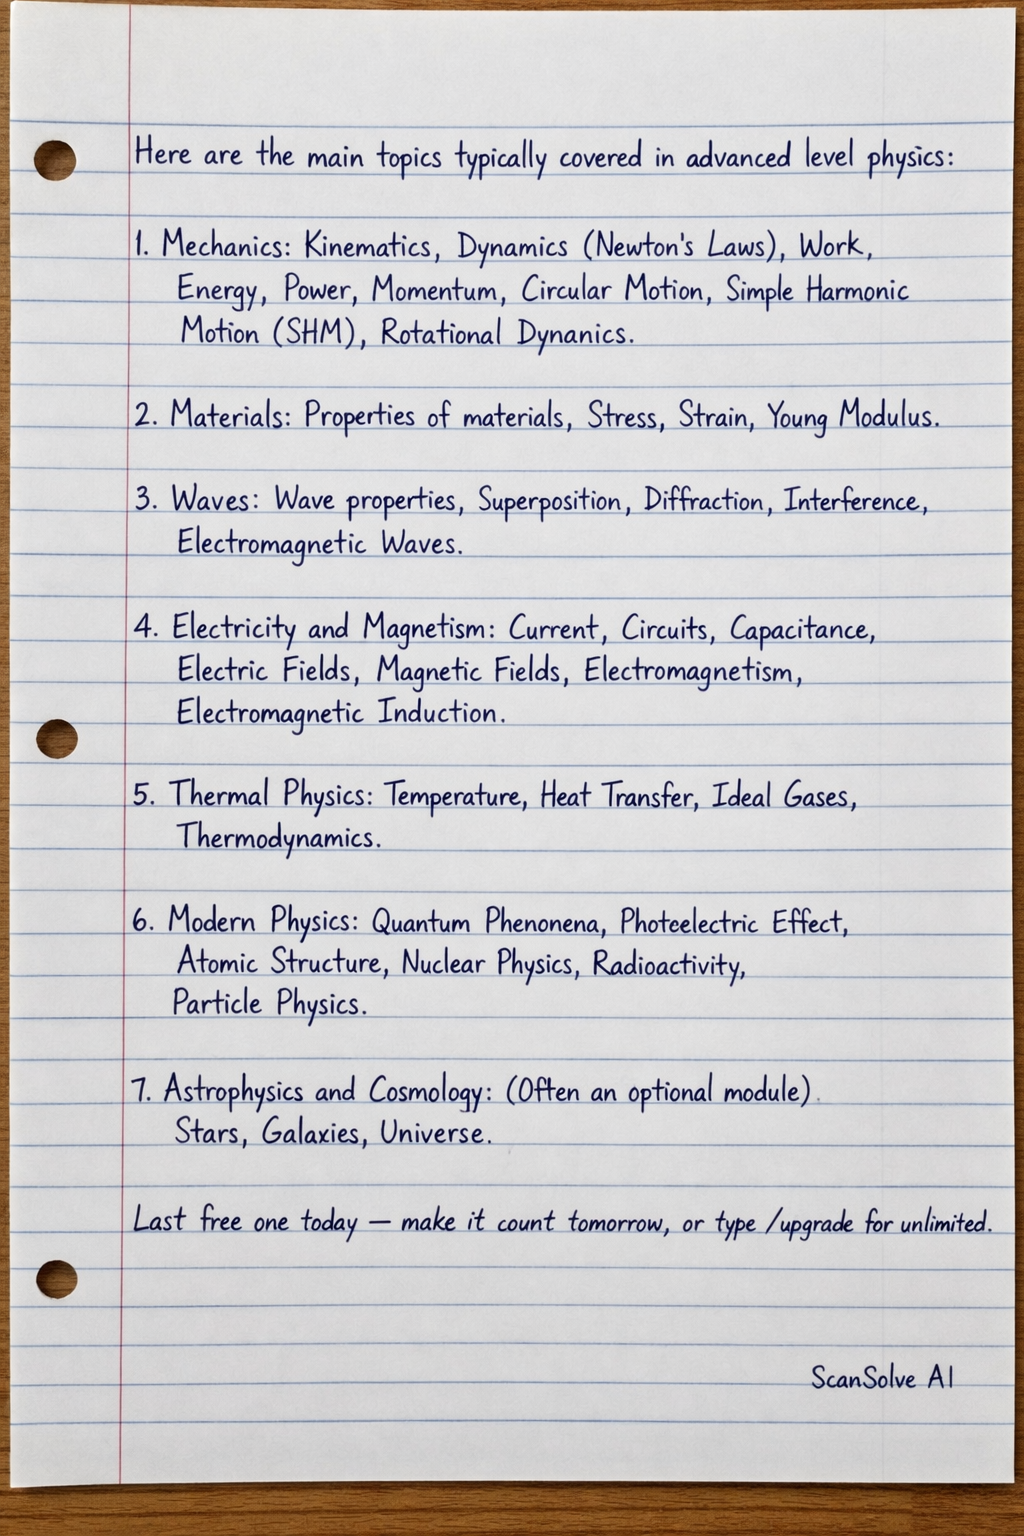 Here are the main topics typically covered in advanced level physics:
1. Mechanics: Kinematics, Dynamics (Newton's Laws), Work,
Energy, Power, Momentum, Circular Motion, Simple Harmonic
Motion (SHM), Rotational Dynanics.
2. Materials: Properties of materials, Stress, Strain, Young Modulus.
3. Waves: Wave properties, Superposition, Diffraction, Interference,
Electromagnetic Waves.
4. Electricity and Magnetism: Current, Circuits, Capacitance,
Electric Fields, Magnetic Fields, Electromagnetism,
Electromagnetic Induction.
5. Thermal Physics: Temperature, Heat Transfer, Ideal Gases,
Thermodynamics.
6. Modern Physics: Quantum Phenonena, Photeelectric Effect,
Atomic Structure, Nuclear Physics, Radioactivity,
Particle Physics.
7. Astrophysics and Cosmology: (Often an optional module).
Stars, Galaxies, Universe.
Last free one today — make it count tomorrow, or type /upgrade for unlimited.
ScanSolve AI